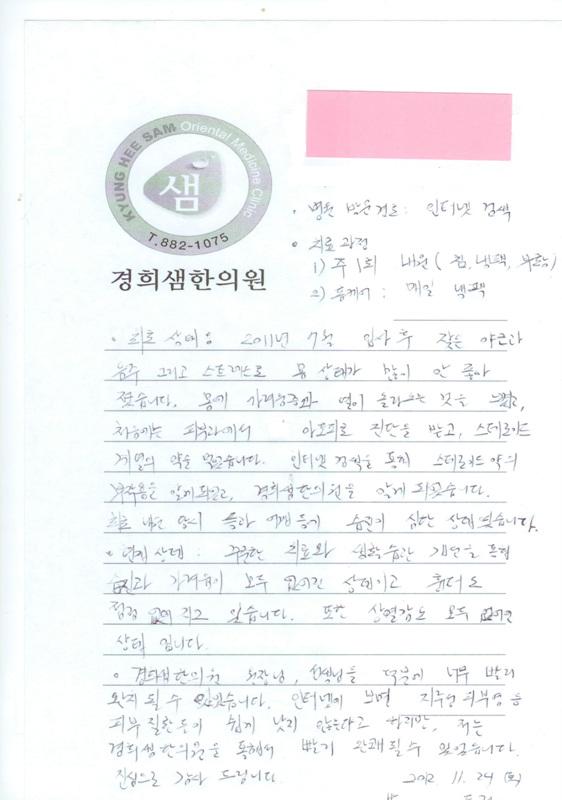 KYUNG HEE SAM Oriental Medicine Clinic
샘
T.882-1075
경희샘한의원
• 병원 방문 경로: 인터넷 검색
• 치료 과정
1) 주 1회 내원 (침, 냉팩,
2) 홈케어: 매일 냉팩
• 치료 상태: 2011년 7월 입사 후 잦은 야근과
음주 그리고 스트레스로 몸 상태가 많이 안 좋아
졌습니다. 몸에 가려움증과 열이 올라오는 것을 느꼈고,
처음에는 피부과에서 아토피로 진단을 받고, 스테로이드
계열의 약을 먹었습니다. 인터넷 검색을 통해 스테로이드 약의
부작용을 알게되었고, 경희샘한의원을 알게 되었습니다.
최초 내원 당시 등에 습진기 심한 상태였습니다.
• 현재 상태: 꾸준한 치료와 생활습관 개선을 통해
습진과 가려움이 모두 없어진 상태이고 흉터도
점점 없어 지고 있습니다. 또한 상열감도 모두 없어진
상태 입니다.
• 경희샘한의원 원장님, 선생님들 덕분에 너무 빨리
완치 될 수 있었습니다. 인터넷에 보면 지루성 피부염 등
피부 질환 등이 쉽게 낫지 않는다고 하지만, 저는
경희샘한의원을 통해서 빨리 완쾌될 수 있었습니다.
진심으로 감사 드립니다. 2012. 11. 24 (토)